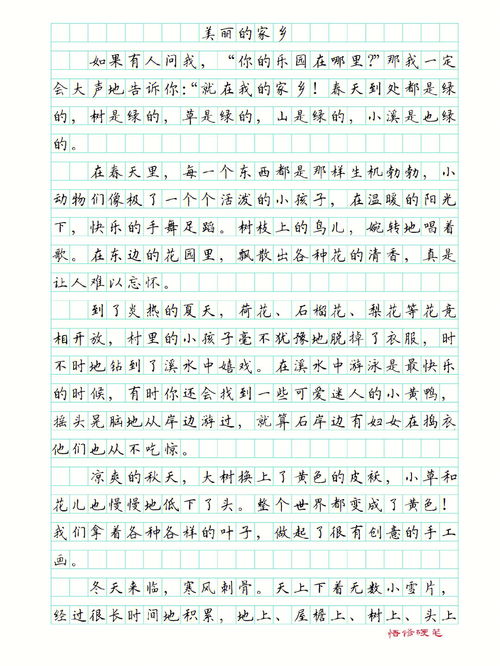 美丽的家乡
如果有人问我，“你的乐园在哪里?”那我一定
会大声地告诉你:“就在我的家乡！春天到处都是绿
的，树是绿的，草是绿的，山是绿的，小溪是也绿
的。
在春天里，每一个东西都是那样生机勃勃，小
动物们像极了一个个活泼的小孩子，在温暖的阳光
下，快乐的手舞足蹈。树枝上的鸟儿，婉转地唱着
歌。在东边的花园里，飘散出各种花的清香，真是
让人难以忘怀。
到了炎热的夏天，荷花、石榴花、梨花等花竞
相开放，村里的小孩子毫不犹豫地脱掉了衣服，时
不时地钻到了溪水中嬉戏。在溪水中游泳是最快乐
的时候，有时你还会找到一些可爱迷人的小黄鸭，
摇头晃脑地从岸边游过，就算石岸边有妇女在捣衣
他们也从不吃惊。
凉爽的秋天，大树换上了黄色的皮袄，小草和
花儿也慢慢地低下了头。整个世界都变成了黄色！
我们拿着各种各样的叶子，做起了很有创意的手工
画。
冬天来临，寒风刺骨。天上下着无数小雪片，
经过很长时间地积累，地上、屋檐上、树上、头上
悟修硬笔